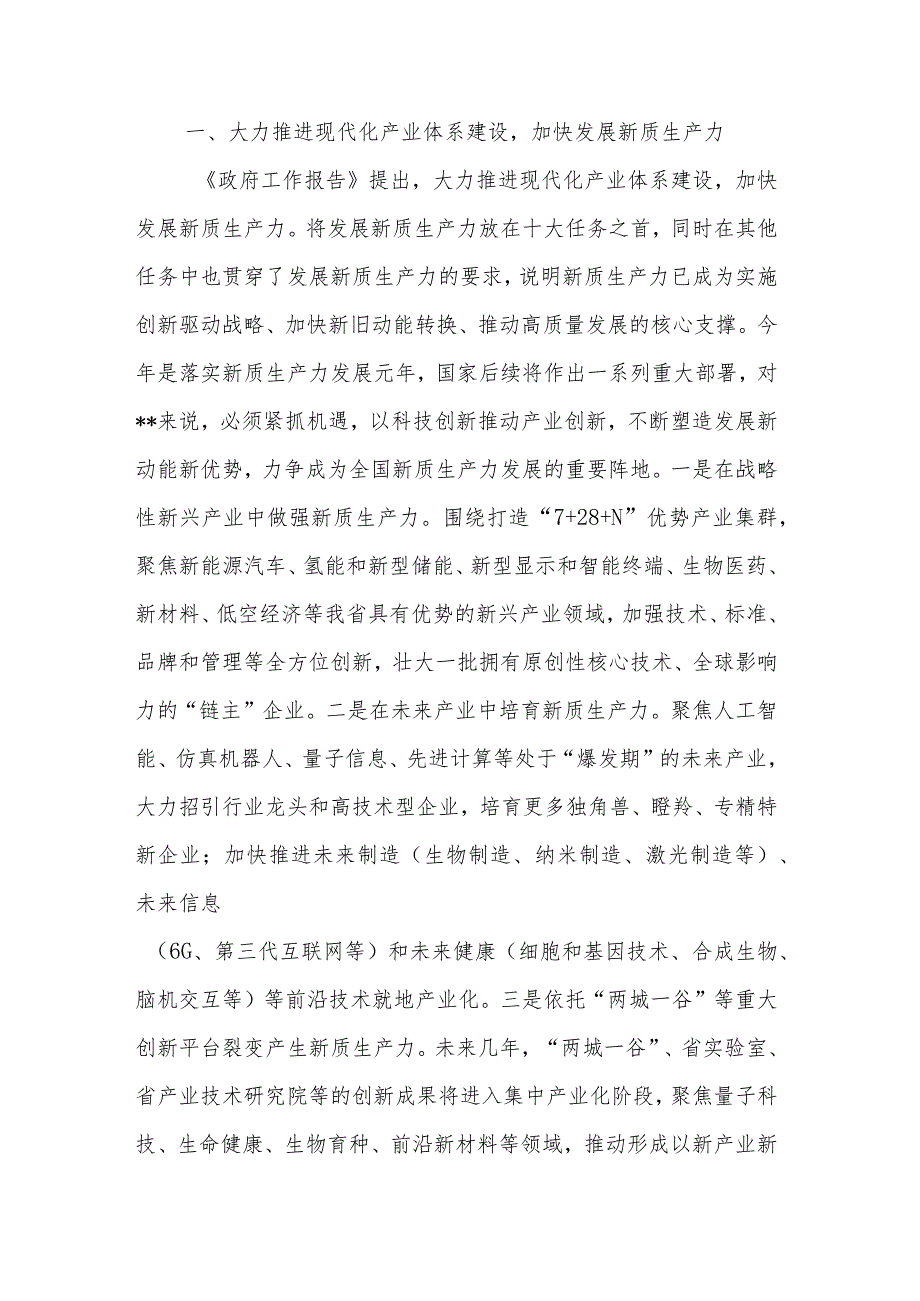 一、大力推进现代化产业体系建设，加快发展新质生产力
《政府工作报告》提出，大力推进现代化产业体系建设，加快
发展新质生产力。将发展新质生产力放在十大任务之首，同时在其他
任务中也贯穿了发展新质生产力的要求，说明新质生产力已成为实施
创新驱动战略、加快新旧动能转换、推动高质量发展的核心支撑。今
年是落实新质生产力发展元年，国家后续将作出一系列重大部署，对
**来说，必须紧抓机遇，以科技创新推动产业创新，不断塑造发展新
动能新优势，力争成为全国新质生产力发展的重要阵地。一是在战略
性新兴产业中做强新质生产力。围绕打造“7+28+N”优势产业集群，
聚焦新能源汽车、氢能和新型储能、新型显示和智能终端、生物医药、
新材料、低空经济等我省具有优势的新兴产业领域，加强技术、标准、
品牌和管理等全方位创新，壮大一批拥有原创性核心技术、全球影响
力的“链主”企业。二是在未来产业中培育新质生产力。聚焦人工智
能、仿真机器人、量子信息、先进计算等处于“爆发期”的未来产业，
大力招引行业龙头和高技术型企业，培育更多独角兽、瞪羚、专精特
新企业；加快推进未来制造（生物制造、纳米制造、激光制造等）、
未来信息
（6G、第三代互联网等）和未来健康（细胞和基因技术、合成生物、
脑机交互等）等前沿技术就地产业化。三是依托“两城一谷”等重大
创新平台裂变产生新质生产力。未来几年，“两城一谷”、省实验室、
省产业技术研究院等的创新成果将进入集中产业化阶段，聚焦量子科
技、生命健康、生物育种、前沿新材料等领域，推动形成以新产业新